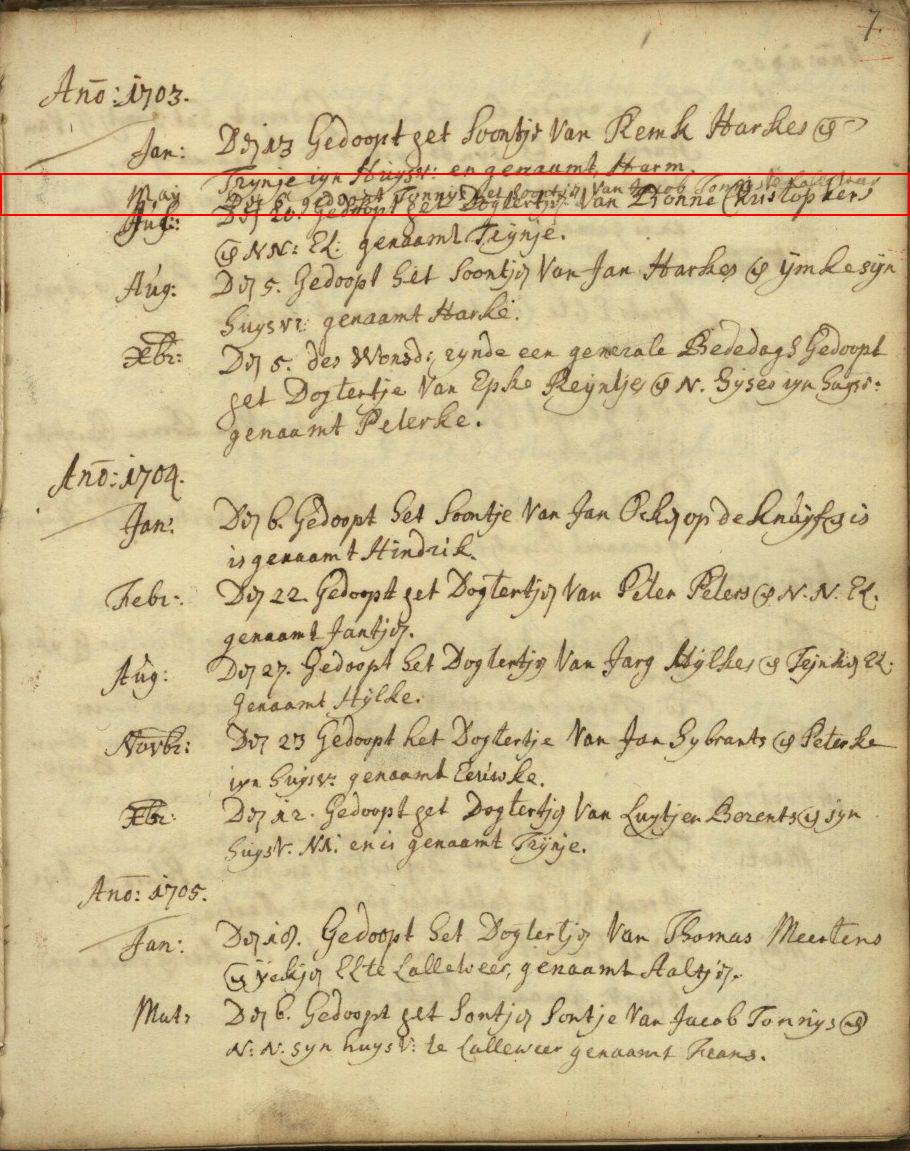 7
Año: 1703.
Jan: Den 13 Gedoopt het Soontje Van Remk Harkes &
Trynje syn Huysv: en genaamt, Harm.
May Den 6 gedoopt Tonnys het soontje Van Jacob Tonnis te Lalleweer
Aug: Den 20. Gedoopt het Dogtertje Van Tonne Christophers
& NN: El: genaamt Trÿnje.
Aúg: Den 5. Gedoopt hét Soontjen Van Jan Harkes & ÿmke sÿn
huysvr: genaamt Harke.
Xbr: Den 5. des Wonsd: zynde een generale Bededagh Gedoopt
het Dogtertje Van Epke Reÿntjes & N. Syses syn huysv:
genaamt Peterke.
Año: 1704.
Jan: Den 6. Gedoopt het Soontje Van Jan Ockes op de Knuÿf & is
is genaamt Hindrik.
Febr: Den 22. Gedoopt het Dogtertjen Van Peter Peters & N. N. El.
genaamt Jantjen.
Aúg: Den 27. Gedoopt het Dogtertjen Van Jarg Hÿlkes & Tejnkjen El.
genaamt Hÿlke.
Novbr: Den 23 Gedoopt het Dogtertje Van Jan Sybrants & Peterke
syn huysv: genaamt Eeúwke.
Xbr: Den 12. Gedoopt het Dogtertjen Van Luÿtjen Berents & syn
huysv. NN: en is genaamt Trÿnje.
Año: 1705.
Jan: Den 18. Gedoopt het Dogtertjen Van Thomas Meertens
& ÿekjen El te Lalleweer, genaamt Aaltjen.
Mrt, Den 6. Gedoopt het Sontjen Sontje Van Jacob Tonnÿs &
N: N: syn huys v: te Lalleweer genaamt Frans.